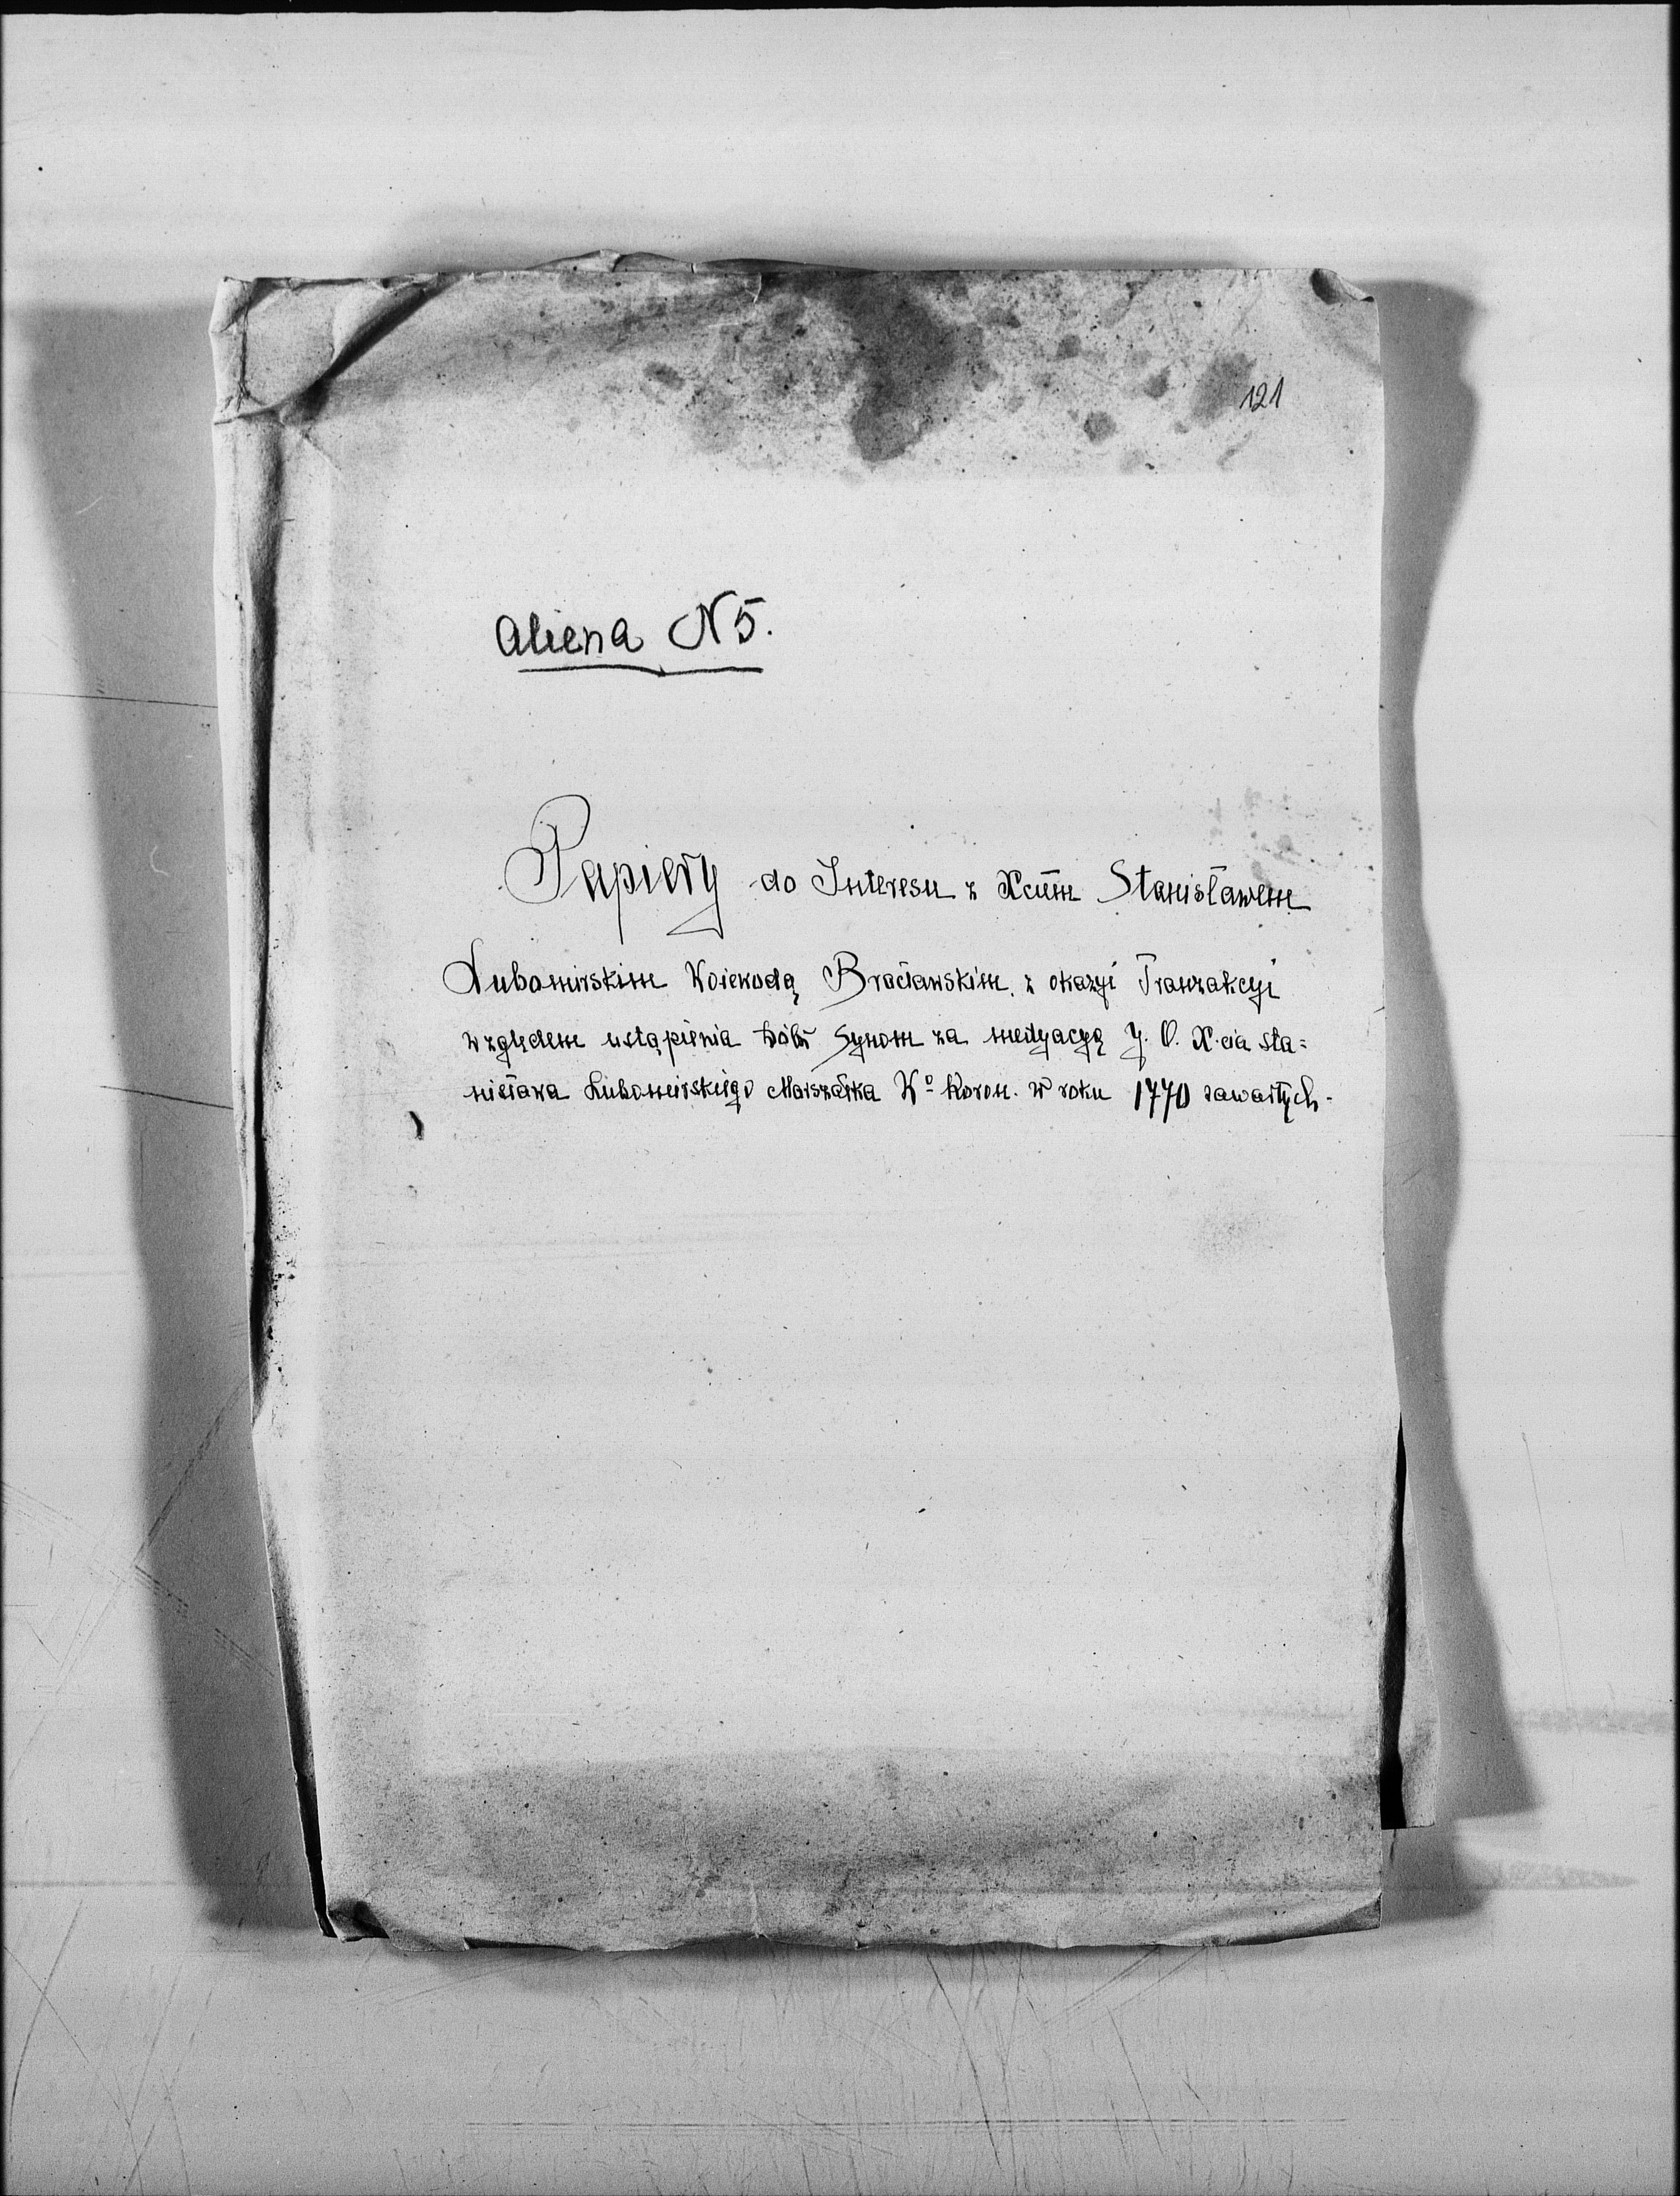 121
Aliena N 5.
Papiery do Interesu z Xciem Stanisławem
Lubomirskim Woiewodą Bracławskim z okazyi Tranzakcyi
względem ustąpienia Dóbr Synom za medyacyą J. O. X-cia Sta=
nisława Lubomirskiego Marszałka Wº Koron. w roku 1770 zawartych-